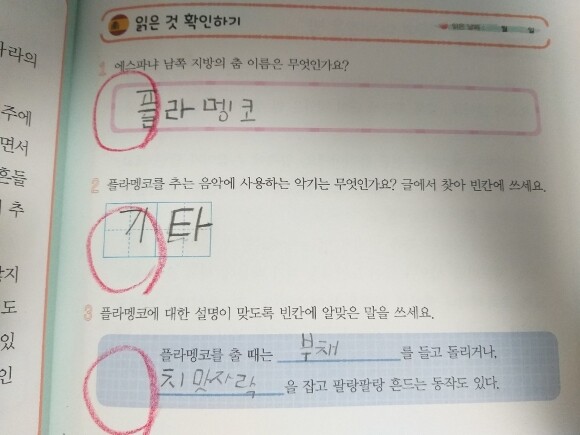 읽은 것 확인하기
읽은 날짜 월 일
라의
1 에스파냐 남쪽 지방의 춤 이름은 무엇인가요?
주에
플라멩코
면서
흔들
2 플라멩코를 추는 음악에 사용하는 악기는 무엇인가요? 글에서 찾아 빈칸에 쓰세요.
추
기타
3 플라멩코에 대한 설명이 맞도록 빈칸에 알맞은 말을 쓰세요.
도
있
플라멩코를 출 때는 부채 를 들고 돌리거나,
인
치맛자락 을 잡고 팔랑팔랑 흔드는 동작도 있다.